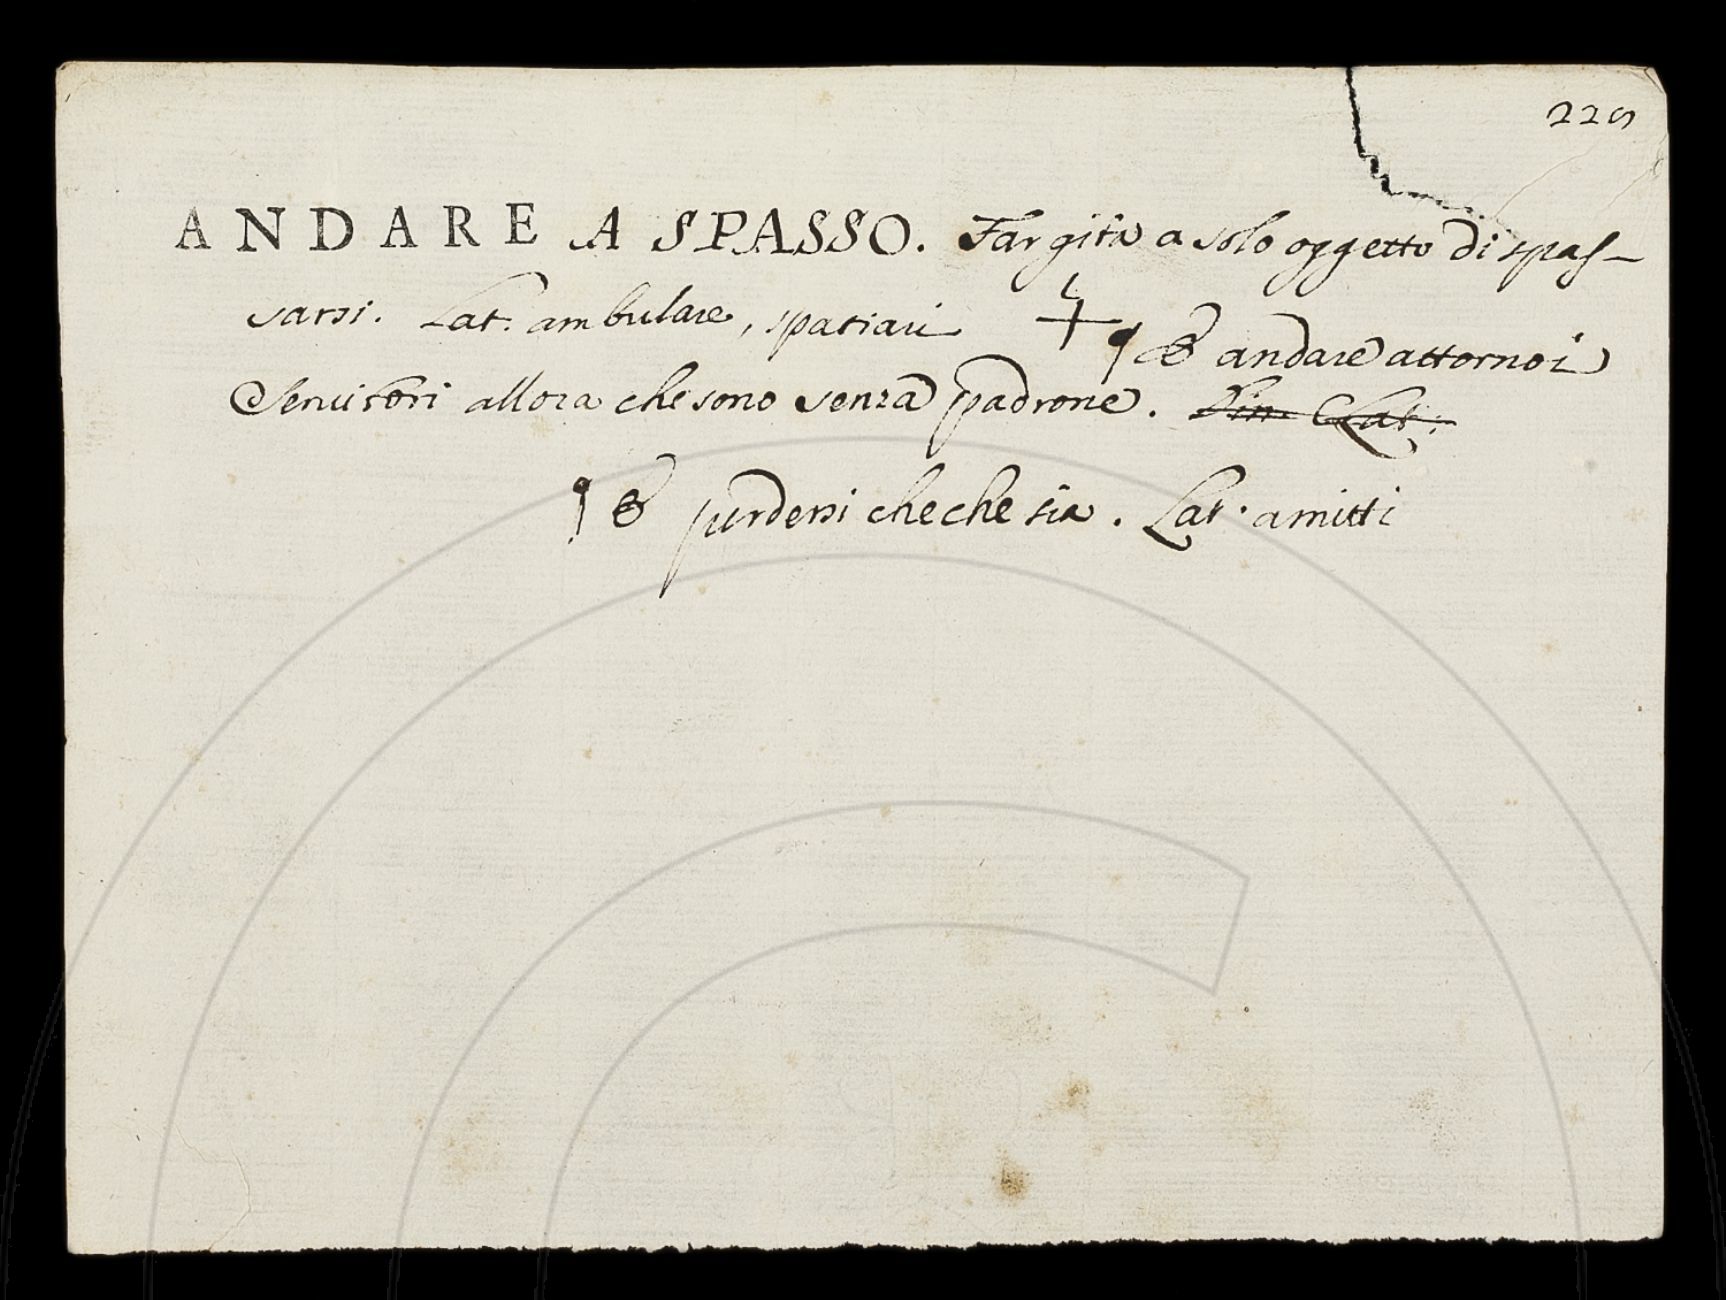 225
ANDARE A SPASSO. Far gita a solo oggetto di spas-
sarsi. Lat. ambulare, spatiari ¶ & andare attorno i
Seruitori allora che sono senza padrone. Sin. Lat.
¶ & perdersi cheche sia. Lat. amitti